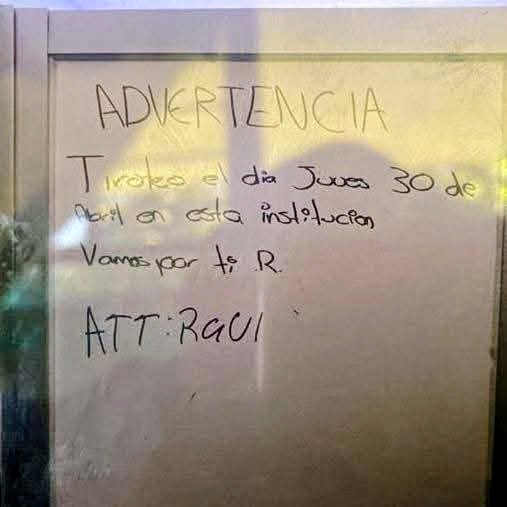 ADVERTENCIA
Tiroteo el dia Jueves 30 de
Abril en esta institucion
Vamos por ti R.
ATT: RaUl